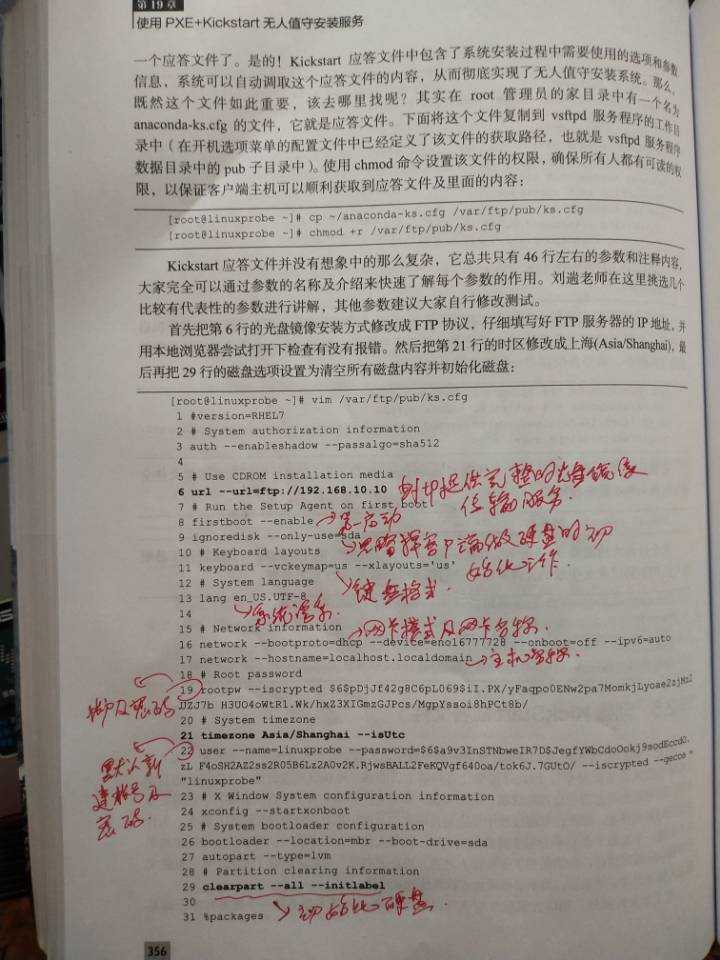 第 19 章
使用 PXE+Kickstart 无人值守安装服务
一个应答文件了。是的！Kickstart 应答文件中包含了系统安装过程中需要使用的选项和参数
信息，系统可以自动调取这个应答文件的内容，从而彻底实现了无人值守安装系统。那么，
既然这个文件如此重要，该去哪里找呢？其实在 root 管理员的家目录中有一个名为
anaconda-ks.cfg 的文件，它就是应答文件。下面将这个文件复制到 vsftpd 服务程序的工作目
录中（在开机选项菜单的配置文件中已经定义了该文件的获取路径，也就是 vsftpd 服务程序
数据目录中的 pub 子目录中）。使用 chmod 命令设置该文件的权限，确保所有人都有可读的权
限，以保证客户端主机可以顺利获取到应答文件及里面的内容：
[root@linuxprobe ~]# cp ~/anaconda-ks.cfg /var/ftp/pub/ks.cfg
[root@linuxprobe ~]# chmod +r /var/ftp/pub/ks.cfg
Kickstart 应答文件并没有想象中的那么复杂，它总共只有 46 行左右的参数和注释内容，
大家完全可以通过参数的名称及介绍来快速了解每个参数的作用。刘遄老师在这里挑选几个
比较有代表性的参数进行讲解，其他参数建议大家自行修改测试。
首先把第 6 行的光盘镜像安装方式修改成 FTP 协议，仔细填写好 FTP 服务器的 IP 地址，并
用本地浏览器尝试打开下检查有没有报错。然后把第 21 行的时区修改成上海(Asia/Shanghai)，最
后再把 29 行的磁盘选项设置为清空所有磁盘内容并初始化磁盘：
[root@linuxprobe ~]# vim /var/ftp/pub/ks.cfg
1 #version=RHEL7
2 # System authorization information
3 auth --enableshadow --passalgo=sha512
4
5 # Use CDROM installation media
6 url --url=ftp://192.168.10.10 提供完整的光盘镜像
传输服务.
7 # Run the Setup Agent on first boot
8 firstboot --enable 第一启动
9 ignoredisk --only-use=sda 客户端做硬盘的初
始化工作.
10 # Keyboard layouts
11 keyboard --vckeymap=us --xlayouts='us' 键盘格式.
12 # System language
13 lang en_US.UTF-8
14 系统语系.
15 # Network information 网卡模式及网卡名称.
16 network --bootproto=dhcp --device=eno16777728 --onboot=off --ipv6=auto
17 network --hostname=localhost.localdomain 主机名称.
18 # Root password
19 rootpw --iscrypted
20 # System timezone
21 timezone Asia/Shanghai --isUtc
22 user --name=linuxprobe
--iscrypted --gecos="
"linuxprobe"
默认新
建帐号及
密码.
23 # X Window System configuration information
24 xconfig --startxonboot
25 # System bootloader configuration
26 bootloader --location=mbr --boot-drive=sda
27 autopart --type=lvm
28 # Partition clearing information
29 clearpart --all --initlabel
30
31 %packages 初始化硬盘.
356